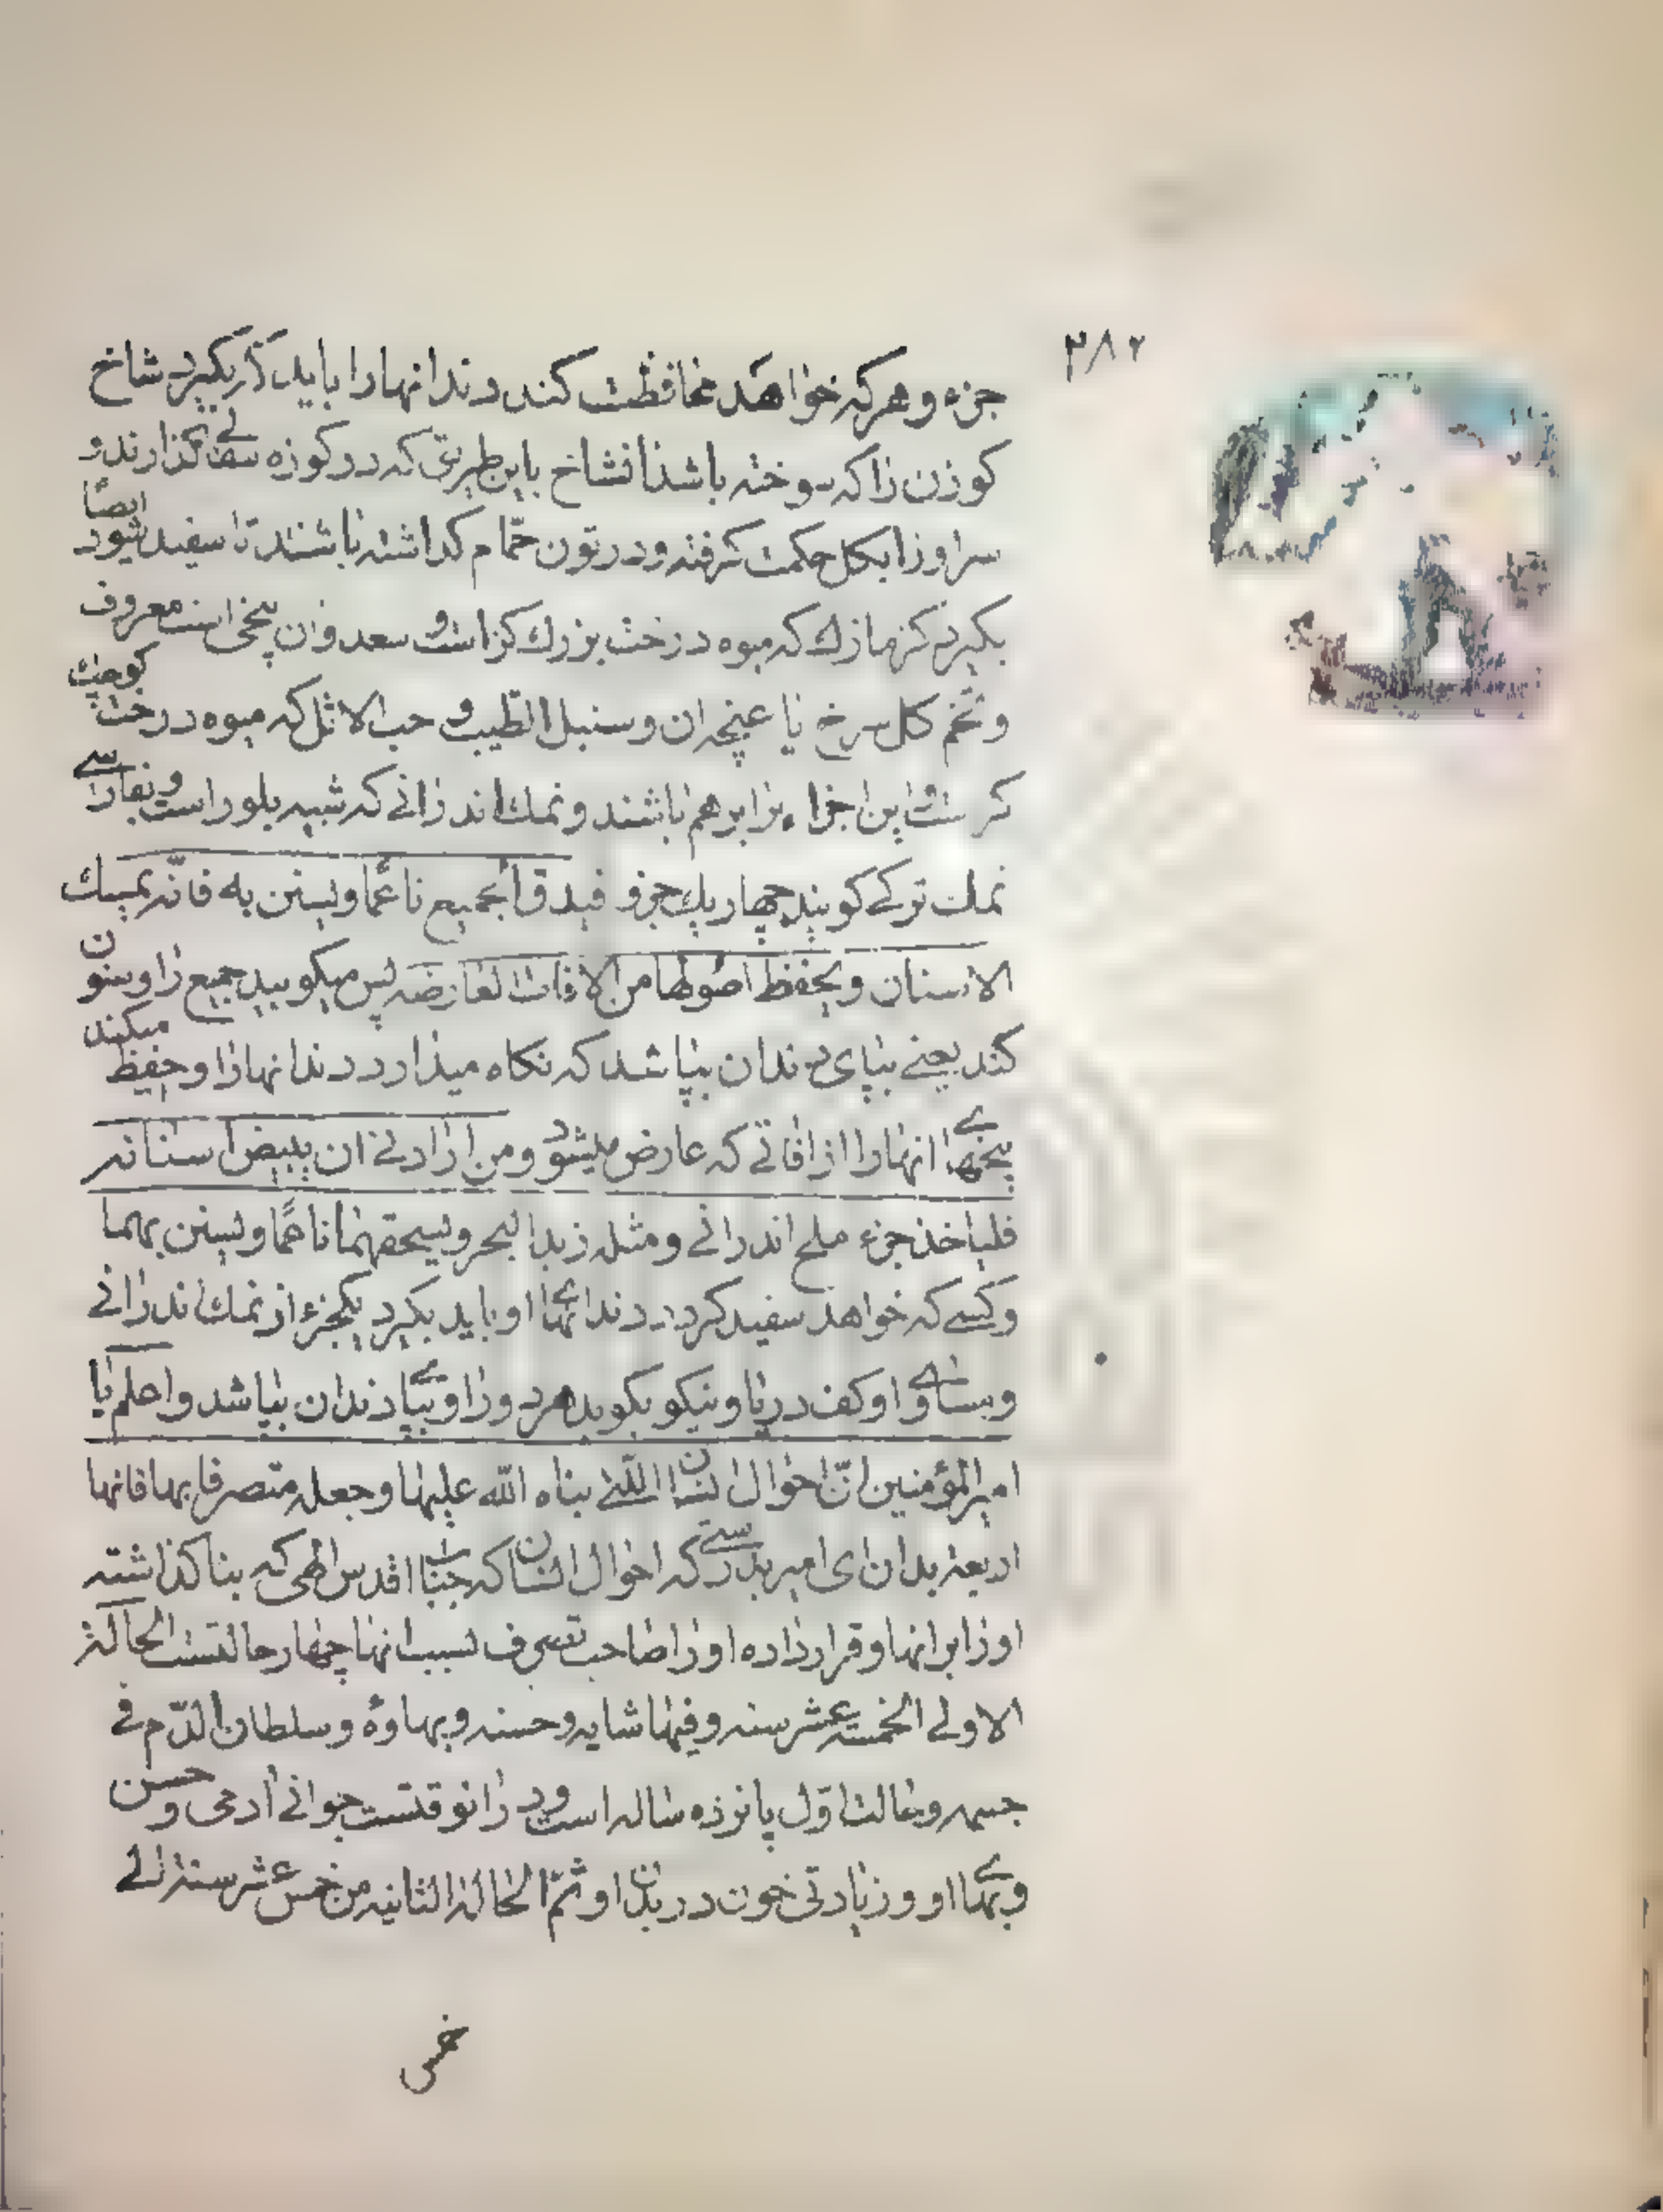 ۳۸۲
جزء و هرکه خواهد محافظت کند دندانها را باید که بگیرد شاخ
کوزن را که سوخته باشد انشاخ باین طریق که در کوزه سفالی گذارند و
سر او را بکل حکمت گرفته و در تون حمام گذاشته باشند تا سفید شود ایضا
بگیرد کزمازک که میوه درخت بزرک کز است و سعد و ان بیخی است معروف
و تخم کل سرخ یا غنچه ان و سنبل الطیب و حب الاثل که میوه درخت کوچک
کز است و این اجزاء برابر هم باشند و نمک اندرانی که شبیه بلور است و بفارسی
نمک ترکی کویند چهار یک جزو فیدق الجمیع ناعما و یستن به فانه یمسک
الاسنان و یحفظ اصولها من الافات العارضه پس میکوبید جمیع را و سنون
کند یعنی بپای دندان بپاشد که نکاه میدارد دندانها را و حفظ میکند
بیخهای انها را از افاتی که عارض میشود و من اراد ان یبیض اسنانه
فلیاخذ جزء ملح اندرانی و مثله زبد البحر و یسحقهما ناعما و یستن بهما
و کسی که خواهد سفید کردد دندانهای او باید بکیرد یکجزء از نمک اندرانی
و مساوی او کف دریا و نیکو بکوبد هر دو را و بپای دندان بپاشد و اعلم یا
امیر المؤمنین ان احوال الانسان اللتی بناه الله علیها و جعله متصرفا بها فانها
اربعة بدان ای امیر بدرستی که احوال انسان که جناب اقدس الهی که بنا گذاشته
او را بر انها و قرار داده او را صاحب تصرف بسبب انها چهار حالتست الحالة
الاولی الخمسة عشر سنه و فیها شبابه و حسنه و بهاؤه و سلطان الدم فی
جسمه و حالت اول پانزده ساله است و در انوقتست جوانی ادمی و حسن
و بهای او و زیادتی خون در بدن او ثم الحالة الثانیه من خمس عشر سنة الی
خمس